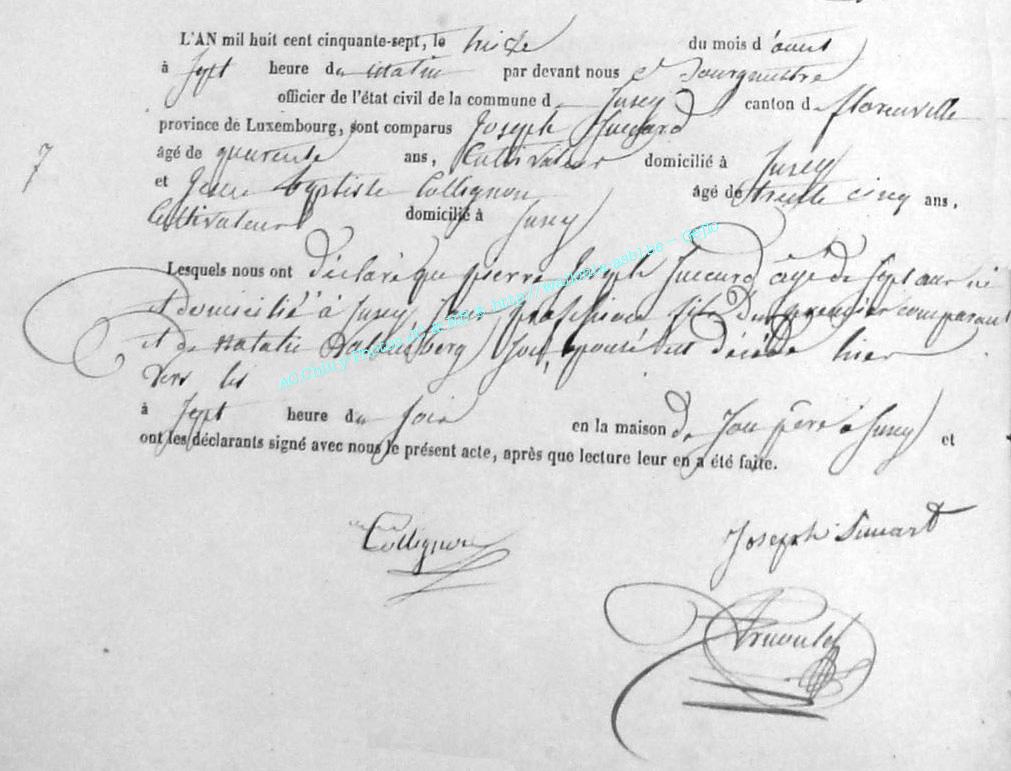 L'AN mil huit cent cinquante-sept, le treize du mois d'aout
à sept heure du matin par devant nous Bourgmestre
officier de l'état civil de la commune d Jusey canton de florenville
province de Luxembourg, sont comparus Joseph
âgé de quarente ans, Cultivateur domicilié à Jusey
7
et Jean baptiste Collignon âgé de trente cinq ans,
Cultivateur domicilié à Jusey
Lesquels nous ont déclaré que pierre Joseph âgé de sept ans né
et domicilié à Jusey sans profession fils du premier comparant
et de Natalie son épouse est décédé hier
vers les
à sept heure du soir en la maison de son père à Jusey et
ont les déclarants signé avec nous le présent acte, après que lecture leur en a été faite.
Collignon
Joseph